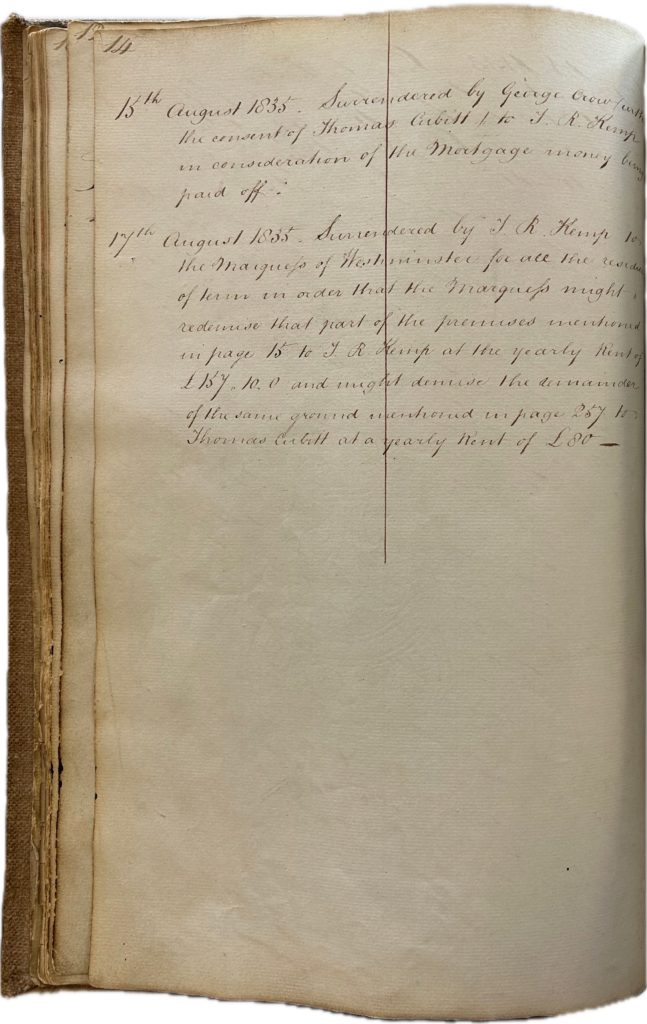 12
14
15th August 1835. Surrendered by George Crow (with
the consent of Thomas Cubitt) to T. R. Kemp
in consideration of the Mortgage money being
paid off.
17th August 1835. Surrendered by T. R. Kemp to
the Marquess of Westminster for all the residue
of term in order that the Marquess might
redemise that part of the premises mentioned
in page 15 to T. R. Kemp at the yearly Rent of
£157.10.0 and might demise the remainder
of the same ground mentioned in page 257 to
Thomas Cubitt at a yearly Rent of £80 —